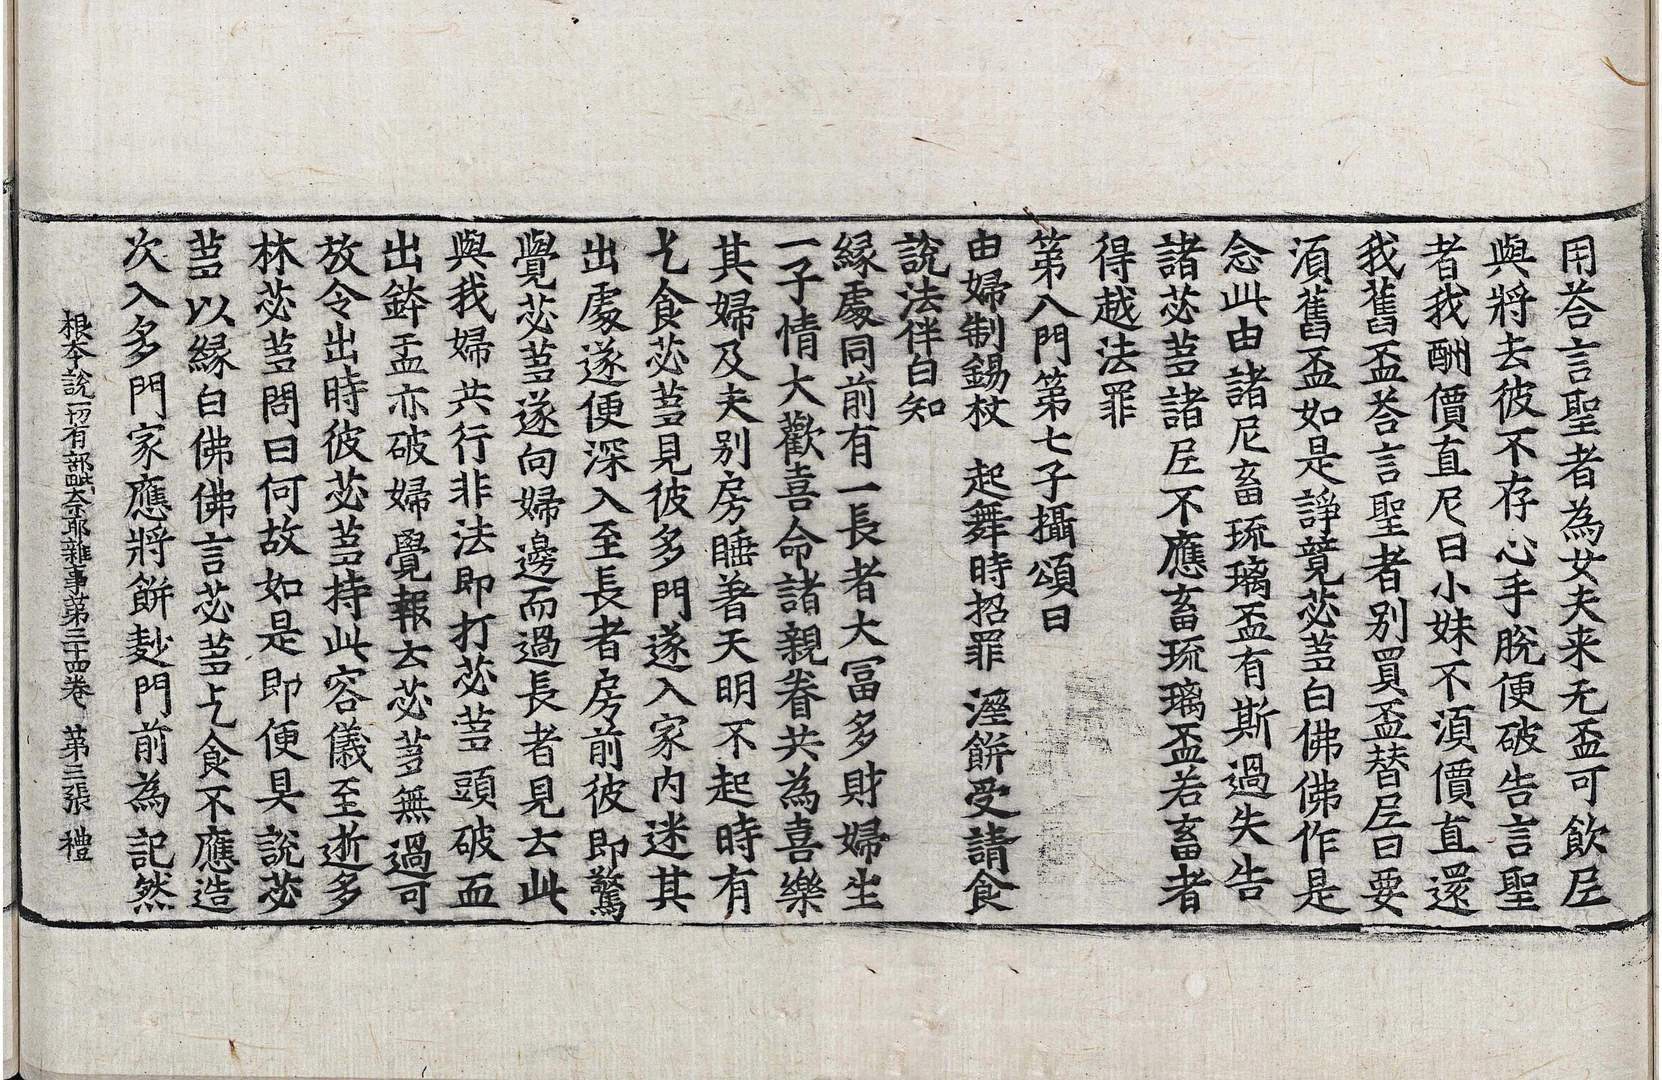 用荅言聖者為女夫来无盃可飲尼
與將去彼不存心手脫便破告言聖
者我酬價直尼曰小妹不湏價直還
我舊盃荅言聖者別買盃替尼曰要
湏舊盃如是諍競苾芻白佛佛作是
念此由諸尼畜琉璃盃有斯過失告
諸苾芻諸尼不應畜琉璃盃若畜者
得越法罪
第八門第七子攝頌曰
由婦制錫杖 起舞時招罪 溼餅受請食
說法伴白知
緣處同前有一長者大冨多財婦生
一子情大歡喜命諸親眷共為喜樂
其婦及夫別房睡著天明不起時有
乞食苾芻見彼多門遂入家內迷其
出處遂便深入至長者房前彼即驚
覺苾芻遂向婦邊而過長者見去此
與我婦共行非法即打苾芻頭破血
出鉢盂亦破婦覺報去苾芻無過可
放令出時彼苾芻持此容儀至逝多
林苾芻問曰何故如是即便具說苾
芻以緣白佛佛言苾芻乞食不應造
次入多門家應將餅麨門前為記然
根本說一切有部毗奈耶雜事第三十四卷 第三張 禮